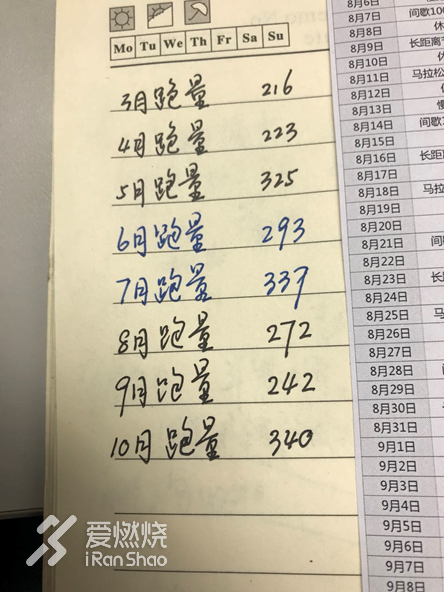 Memo No.
Mo Tu We Th Fr Sa Su
3月跑量 216
4月跑量 223
5月跑量 325
6月跑量 293
7月跑量 337
8月跑量 272
9月跑量 242
10月跑量 340
8月6日
8月7日 间歇100
8月8日 休
8月9日 长距离
8月10日 休
8月11日 马拉松
8月12日
8月13日 慢
8月14日 间歇1
8月15日
8月16日 长距离
8月17日
8月18日 马拉
8月19日
8月20日
8月21日 间歇
8月22日
8月23日 长
8月24日
8月25日 马
8月26日
8月27日
8月28日 间
8月29日
8月30日 长
8月31日
9月1日
9月2日
9月3日
9月4日
9月5日
9月6日
9月7日
9月8日
爱燃烧
iRanShao